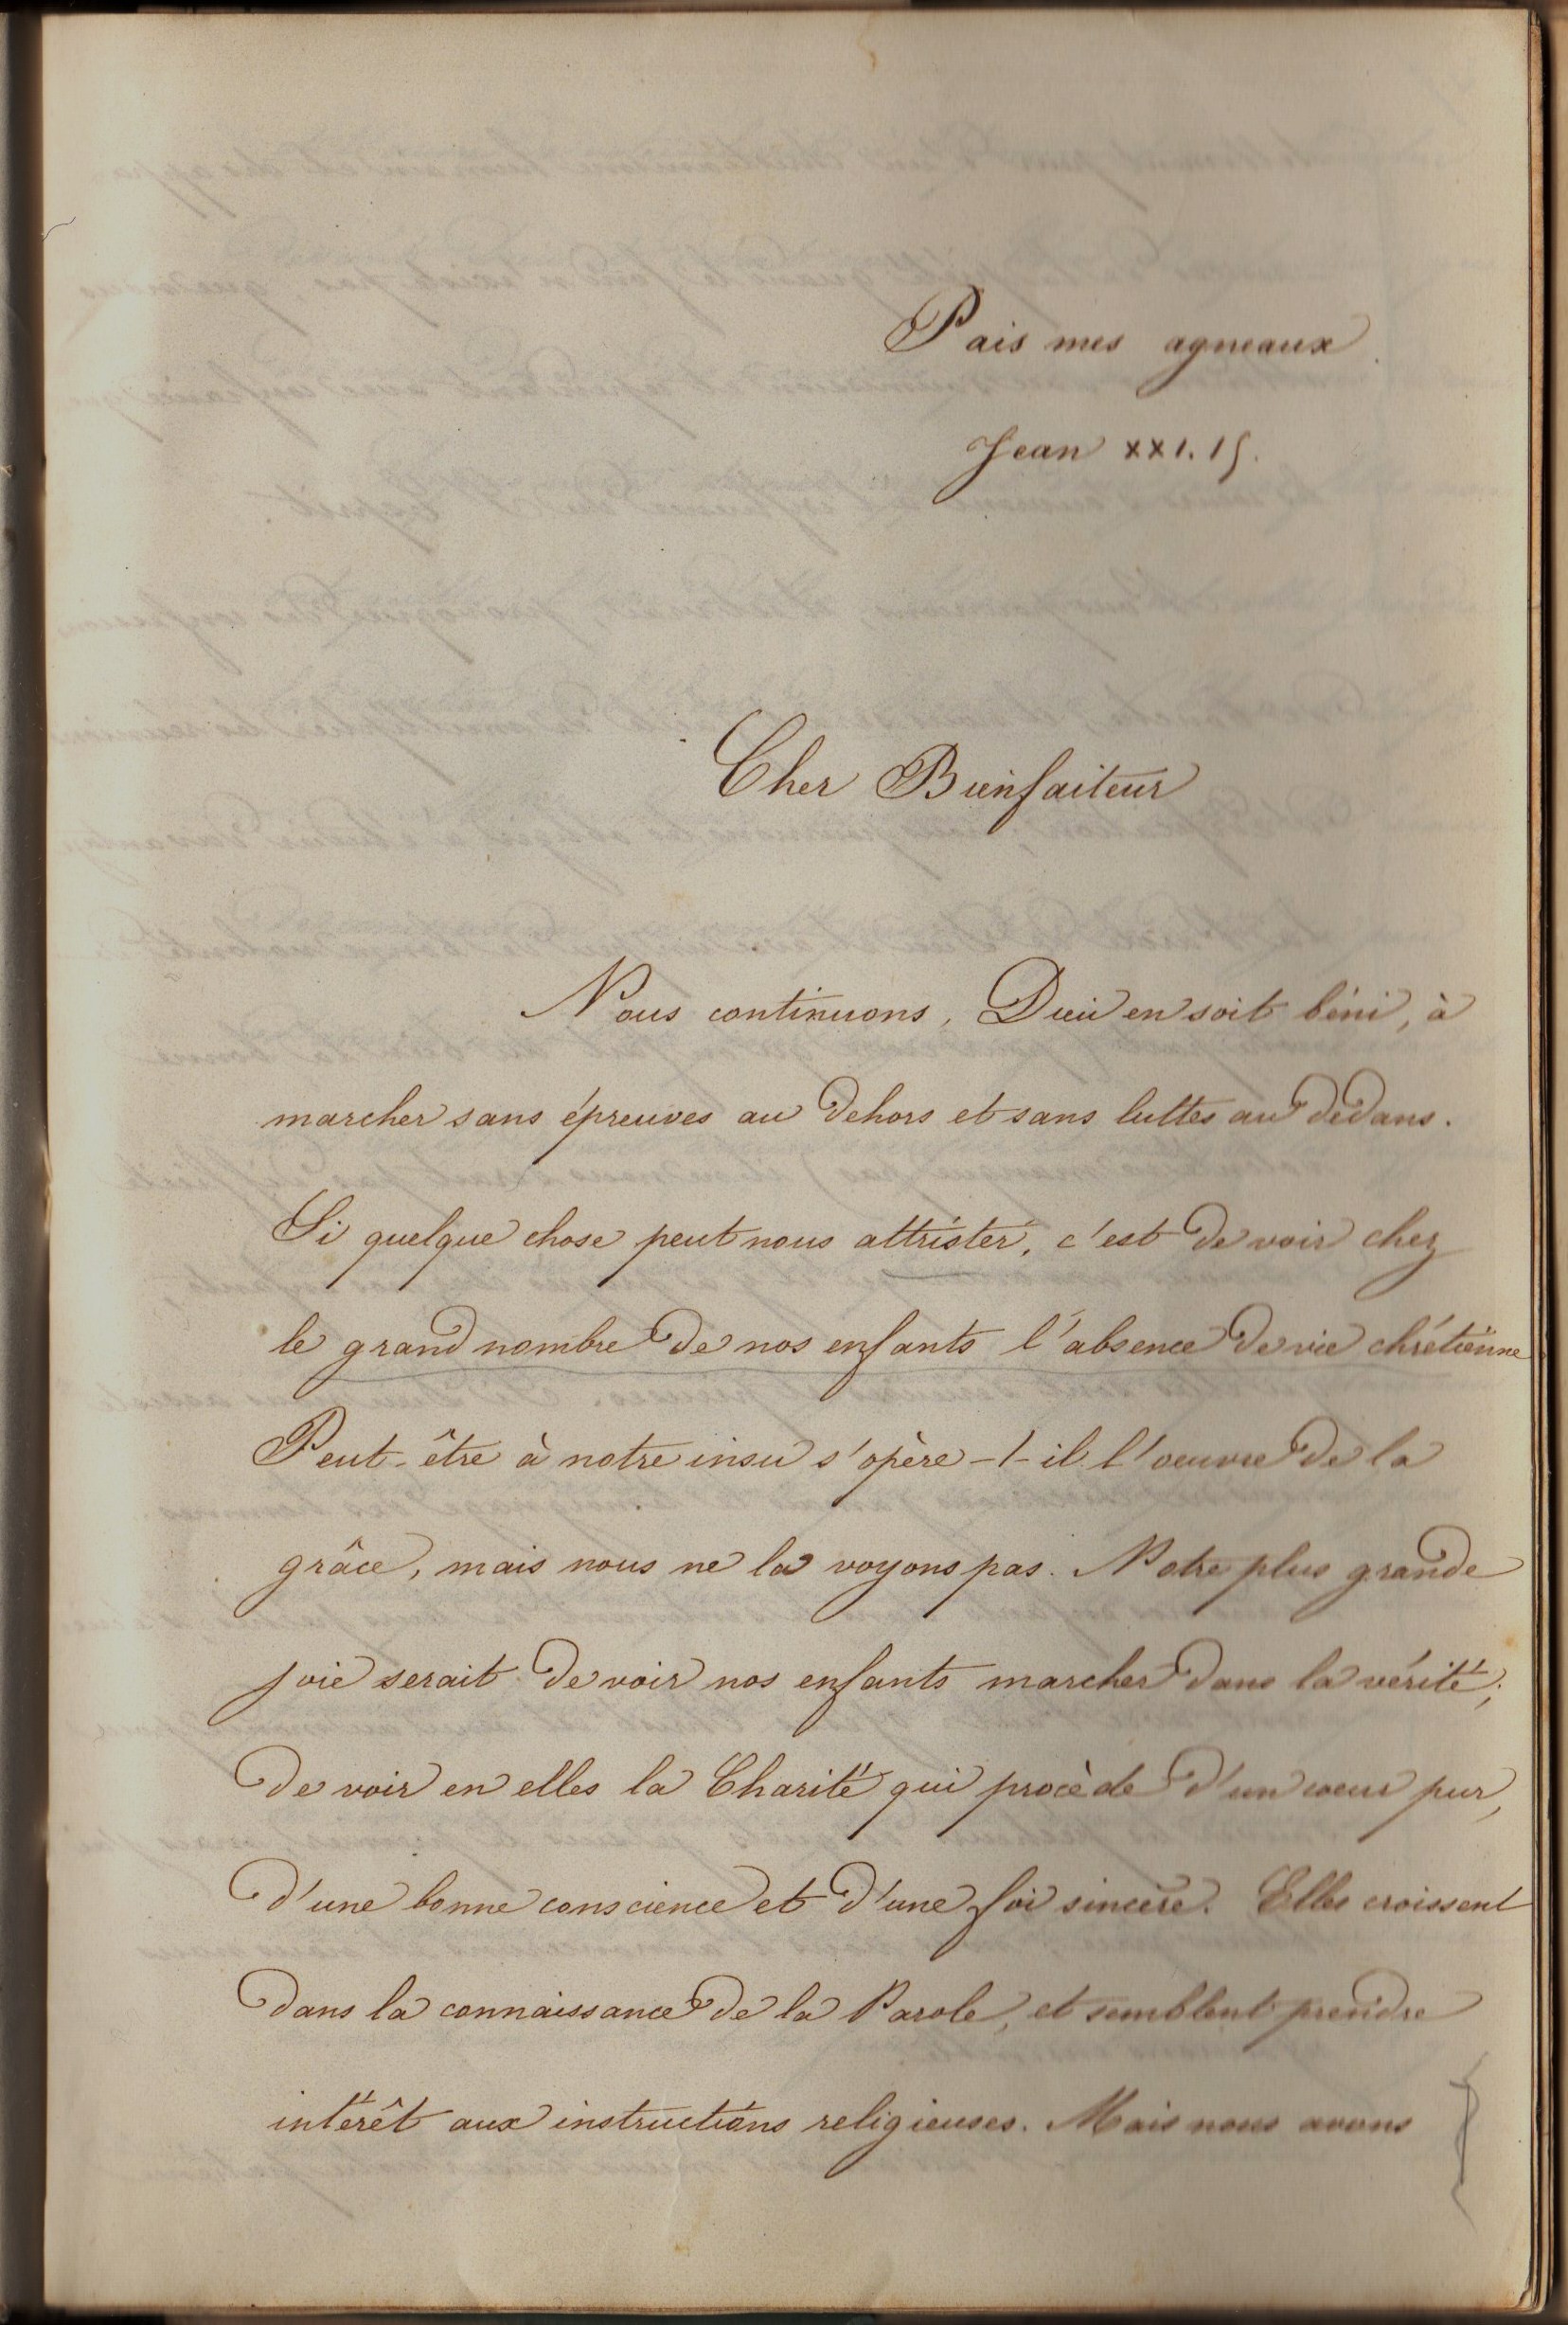 Pais mes agneaux.
Jean XXI. 15.
Cher Bienfaiteur
Nous continuons, Dieu en soit béni, à
marcher sans épreuves au dehors et sans luttes au dedans.
Si quelque chose peut nous attrister, c'est de voir chez
le grand nombre de nos enfants l'absence de vie chrétienne
Peut-être à notre insu s'opère-t-il l'oeuvre de la
grâce, mais nous ne la voyons pas. Notre plus grande
joie serait de voir nos enfants marcher dans la vérité;
de voir en elles la Charité qui procède d'un coeur pur,
d'une bonne conscience et d'une foi sincère. Elles croissent
dans la connaissance de la Parole, et semblent prendre
intérêt aux instructions religieuses. Mais nous avons